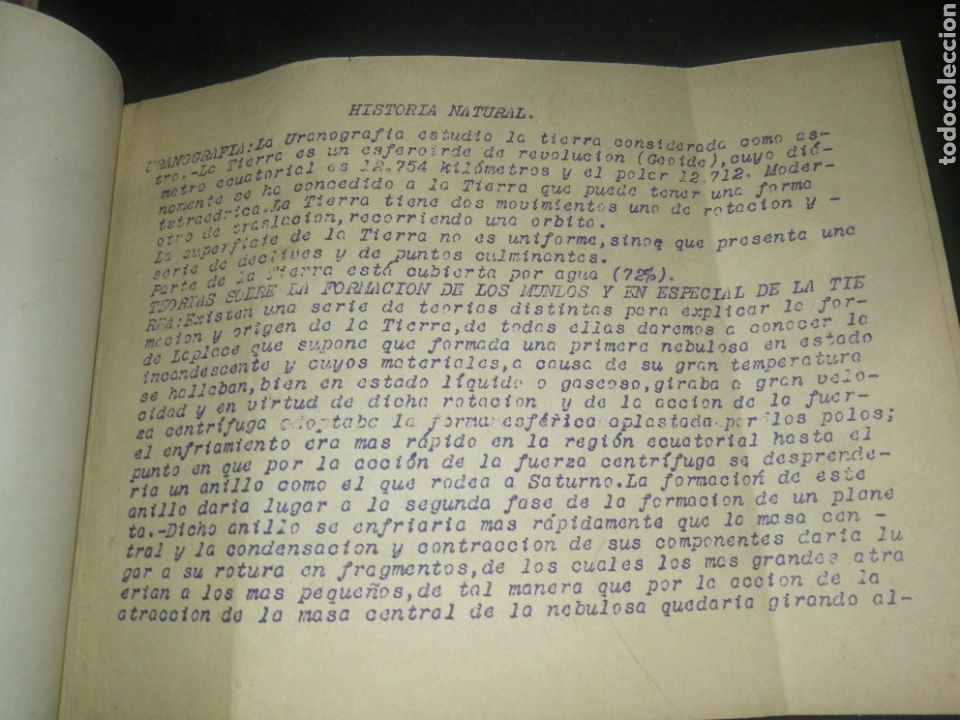 HISTORIA NATURAL.
URANOGRAFIA:La Uranografia estudia la tierra considerada como as-
tro.-La Tierra es un esferoirde de revolucion (Geoide),cuyo diá-
metro ecuatorial es 12.754 kilómetros y el polar 12.712. Moder-
namente se ha concedido a la Tierra que puede tener una forma
tetraedrica.La Tierra tiene dos movimientos uno de rotacion y -
otro de traslacion,recorriendo una orbita.
La superficie de la Tierra no es uniforme,sinoq que presenta una
serie de declives y de puntos culminantes.
Parte de la Tierra está cubierta por agua (72%).
TEORIAS SOBRE LA FORMACION DE LOS MUNDOS Y EN ESPECIAL DE LA TIE
RRA:Existen una serie de teorias distintas para explicar la for-
macion y origen de la Tierra,de todas ellas daremos a conocer la
de Laplace que supone que formada una primera nebulosa en estado
incandescente y cuyos materiales,a causa de su gran temperatura
se hallaban,bien en estado líquido o gaseoso,giraba a gran velo-
cidad y en virtud de dicha rotacion y de la accion de la fuer-
za centrífuga adoptaba la forma esférica aplastada por los polos;
el enfriamiento era mas rápido en la región ecuatorial hasta el
punto en que por la acción de la fuerza centrífuga se desprende-
ria un anillo como el que rodea a Saturno.La formación de este
anillo daria lugar a la segunda fase de la formacion de un plane
ta.-Dicho anillo se enfriaria mas rápidamente que la masa cen -
tral y la condensacion y contraccion de sus componentes daria lu
gar a su rotura en fragmentos,de los cuales los mas grandes atra
erian a los mas pequeños,de tal manera que por la accion de la
atraccion de la masa central de la nebulosa quedaria girando al-
todocoleccion